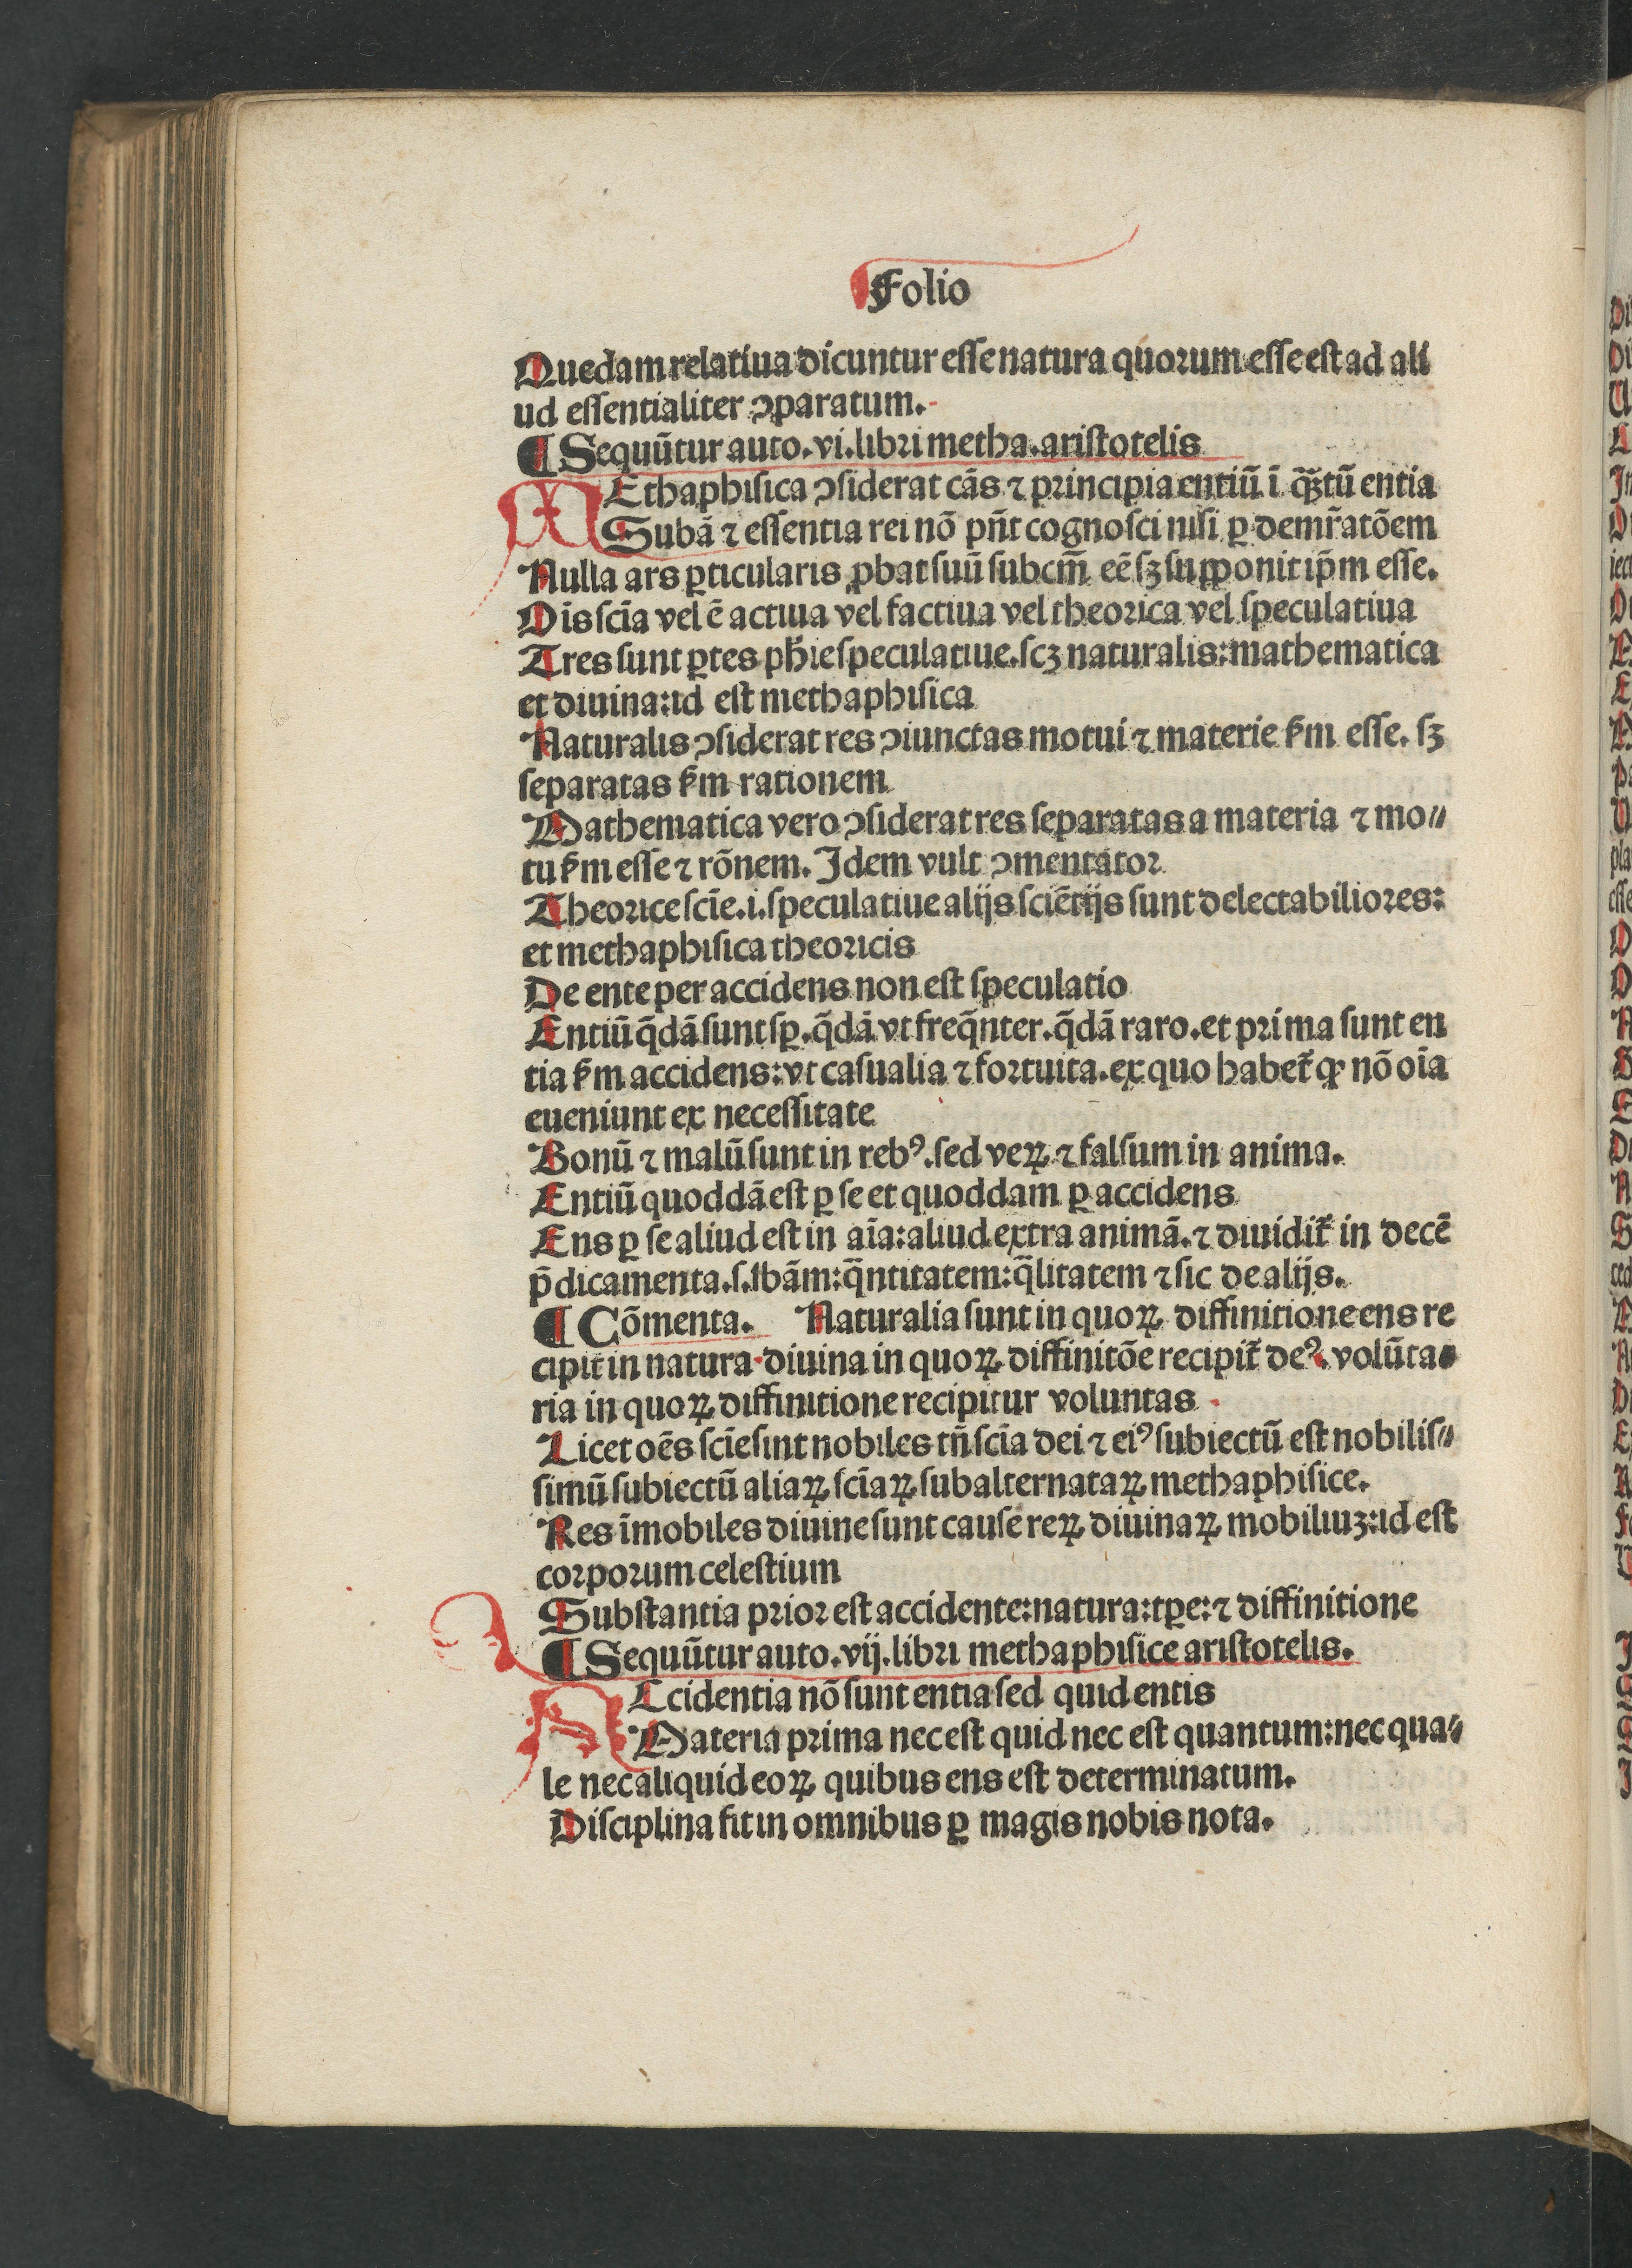 Folio
Quedam relatiua dicuntur esse natura quorum esse est ad ali
ud essentialiter ꝯparatum.
¶ Sequūtur auto. vi. libri metha. aristotelis
MEthaphisica ꝯsiderat cās ⁊ principia entiū ī qꝫtū entia
Subā ⁊ essentia rei nō pn̄t cognosci nisi ꝑ demr̄atōem
Nulla ars ꝑticularis ꝓbat suū subcm̄ eē sꝫ supponit ip̄m esse.
Oīs scīa vel ē actiua vel factiua vel theorica vel speculatiua
Tres sunt ꝑtes ph̄ie speculatiue. scꝫ naturalis: mathematica
et diuina: id est methaphisica
Naturalis ꝯsiderat res ꝯiunctas motui ⁊ materie ẜm esse. sꝫ
separatas ẜm rationem
Mathematica vero ꝯsiderat res separatas a materia ⁊ mo⸗
tu ẜm esse ⁊ rōnem. Idem vult ꝯmentator
Theorice scīe. i. speculatiue alijs sciētijs sunt delectabiliores:
et methaphisica theoricis
De ente per accidens non est speculatio
Entiū q̄dā sunt sꝑ. q̄dā vt freq̄nter. q̄dā raro. et prima sunt en
tia ẜm accidens: vt casualia ⁊ fortuita. ex quo habet᷑ ꝙ nō oīa
eueniunt ex necessitate
Bonū ⁊ malū sunt in rebꝰ. sed veꝝ ⁊ falsum in anima.
Entiū quoddā est ꝑ se et quoddam ꝑ accidens
Ens ꝑ se aliud est in aīa: aliud extra animā. ⁊ diuidit᷑ in decē
p̄dicamenta. s. sbām: q̄ntitatem: q̄litatem ⁊ sic de alijs.
¶ Cōmenta. Naturalia sunt in quoꝝ diffinitione ens re
cipit in natura. diuina in quoꝝ diffinitōe recipit᷑ deꝰ. volūta⸗
ria in quoꝝ diffinitione recipitur voluntas.
Licet oēs scīe sint nobiles tn̄ scīa dei ⁊ eiꝰ subiectū est nobilis⸗
simū subiectū aliaꝝ scīaꝝ subalternataꝝ methaphisice.
Res īmobiles diuine sunt cause reꝝ diuinaꝝ mobiliuꝫ: id est
corporum celestium
Substantia prior est accidente: natura: tꝑe: ⁊ diffinitione
¶ Sequūtur auto. vij. libri methaphisice aristotelis.
ACcidentia nō sunt entia sed quid entis
Materia prima nec est quid nec est quantum: nec qua⸗
le nec aliquid eoꝝ quibus ens est determinatum.
Disciplina fit in omnibus ꝑ magis nobis nota.